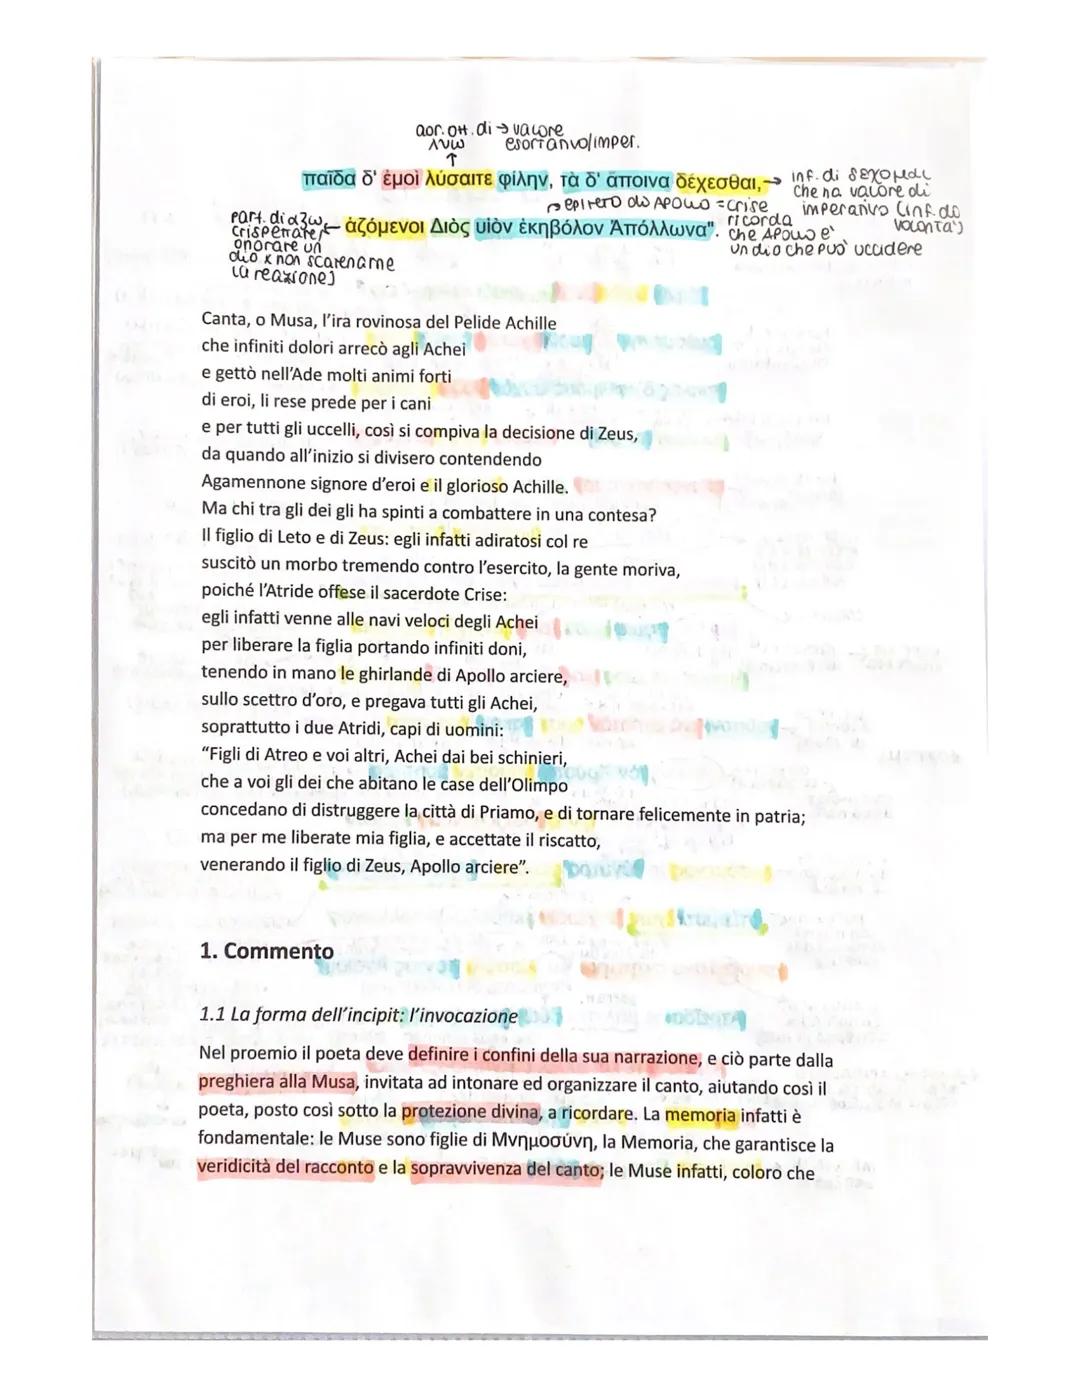 aor. ott. di → valore
λυω esortativo/imper.
↑
παῖδα δ' ἐμοὶ λύσαιτε φίλην, τὰ δ' ἄποινα δέχεσθαι,→ inf. di δεχομαι
che ha valore di
imperativo (inf. di
volontà)
epiteto di Apollo = crise
ricorda
che Apollo e'
un dio che può uccidere
part. di αζω
(rispettare/
onorare un
dio x non scatenarne
la reazione)
ἁζόμενοι Διὸς υἱὸν ἑκηβόλον Ἀπόλλωνα".
Canta, o Musa, l'ira rovinosa del Pelide Achille
che infiniti dolori arrecò agli Achei
e gettò nell'Ade molti animi forti
di eroi, li rese prede per i cani
e per tutti gli uccelli, così si compiva la decisione di Zeus,
da quando all'inizio si divisero contendendo
Agamennone signore d'eroi e il glorioso Achille.
Ma chi tra gli dei gli ha spinti a combattere in una contesa?
Il figlio di Leto e di Zeus: egli infatti adiratosi col re
suscitò un morbo tremendo contro l'esercito, la gente moriva,
poiché l'Atride offese il sacerdote Crise:
egli infatti venne alle navi veloci degli Achei
per liberare la figlia portando infiniti doni,
tenendo in mano le ghirlande di Apollo arciere,
sullo scettro d'oro, e pregava tutti gli Achei,
soprattutto i due Atridi, capi di uomini:
"Figli di Atreo e voi altri, Achei dai bei schinieri,
che a voi gli dei che abitano le case dell'Olimpo
concedano di distruggere la città di Priamo, e di tornare felicemente in patria;
ma per me liberate mia figlia, e accettate il riscatto,
venerando il figlio di Zeus, Apollo arciere".
1. Commento
1.1 La forma dell'incipit: l'invocazione
Nel proemio il poeta deve definire i confini della sua narrazione, e ciò parte dalla
preghiera alla Musa, invitata ad intonare ed organizzare il canto, aiutando così il
poeta, posto così sotto la protezione divina, a ricordare. La memoria infatti è
fondamentale: le Muse sono figlie di Μνημοσύνη, la Memoria, che garantisce la
veridicità del racconto e la sopravvivenza del canto; le Muse infatti, coloro che